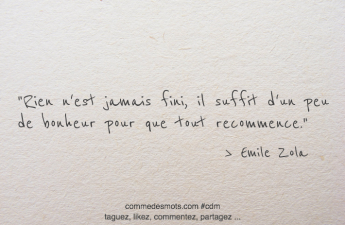 "Rien n'est jamais fini, il suffit d'un peu
de bonheur pour que tout recommence."
> Emile Zola
commedesmots.com #cdm
taguez, likez, commentez, partagez ...